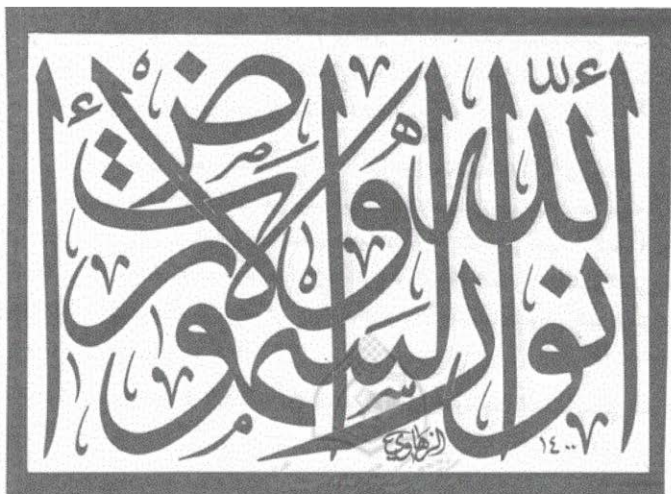 الله نور السموات والأرض
الزهاوي
١٤٠٠